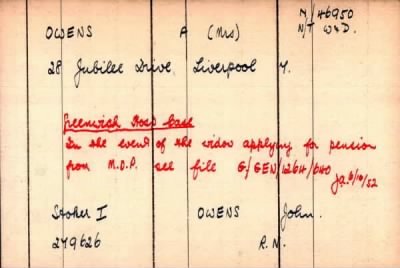 N/46950
OWENS A (Mrs) N/T W&D.
28 Jubilee Drive, Liverpool 7.
Greenwich Hosp case
In the event of the widow applying for pension
from M.O.P. see file G/GEN/1264/640
6/10/52
Stoker I OWENS John.
279626 R.N.